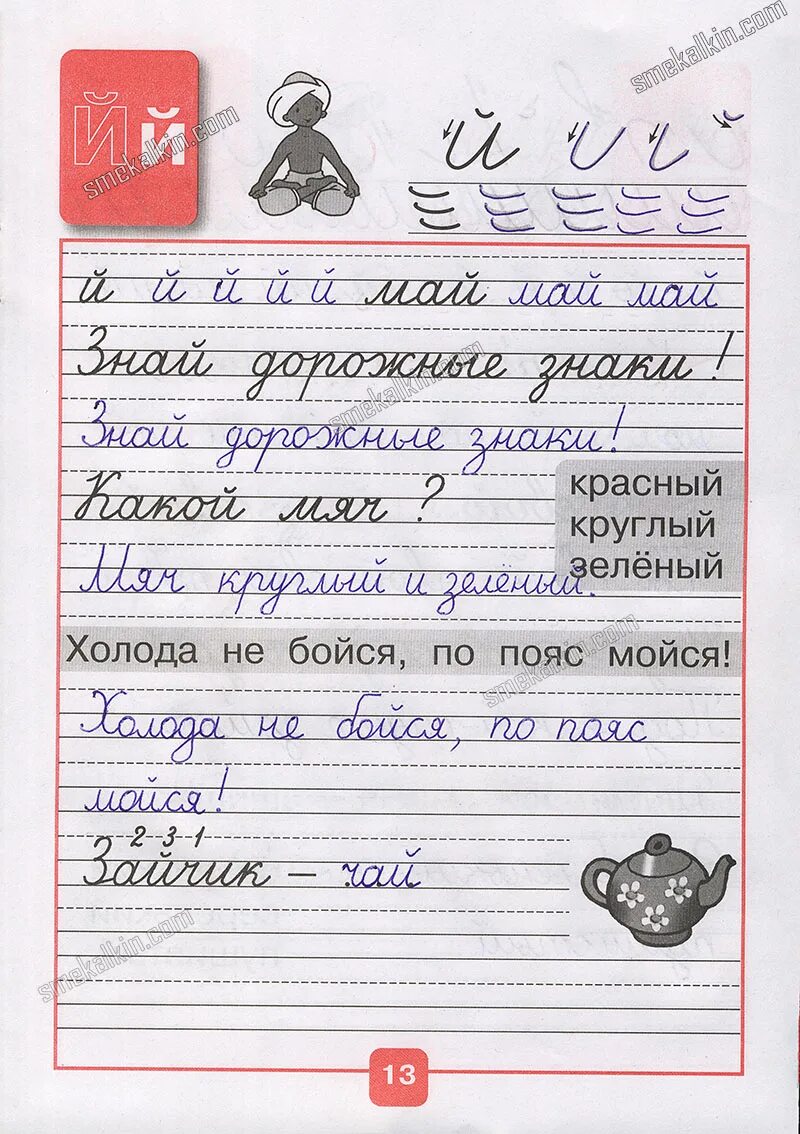 smekalkin.com
Й й
smekalkin.com
й
й й й й й май май май
Знай дорожные знаки!
smekalkin.com
Знай дорожные знаки!
Какой мяч?
красный
круглый
зелёный
Мяч круглый и зелёный.
Холода не бойся, по пояс мойся!
smekalkin.com
Холода не бойся, по пояс
мойся!
2 3 1
Зайчик – чай
smekalkin.com
13